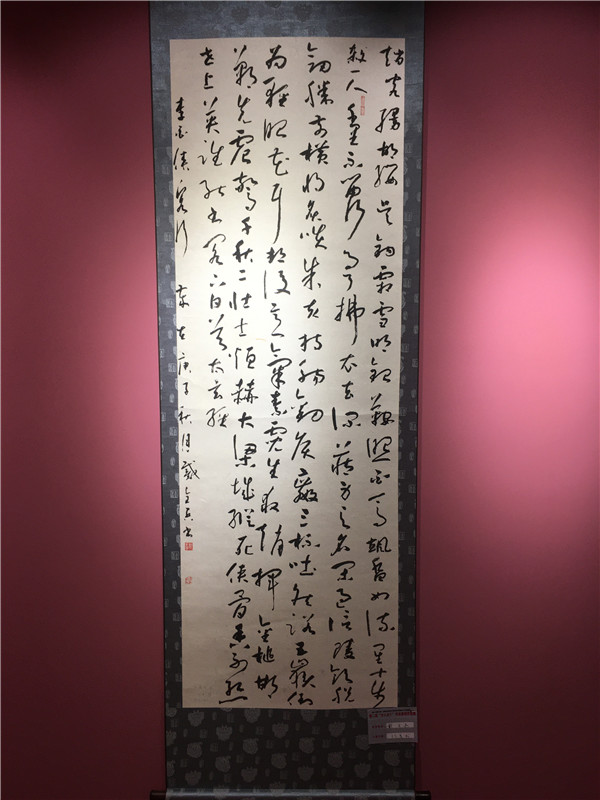 趙客縵胡纓吳鉤霜雪明銀鞍照白馬颯沓如流星十步
殺一人千里不留行事了拂衣去深藏身與名閑過信陵飲脫
劍膝前橫將炙啖朱亥持觴勸侯嬴三杯吐然諾五嶽倒
為輕眼花耳熱後意氣素霓生救趙揮金槌邯
鄲先震驚千秋二壯士烜赫大梁城縱死俠骨香不慚
世上英誰能書閣下白首太玄經
李白俠客行 歲在庚子秋月戴書